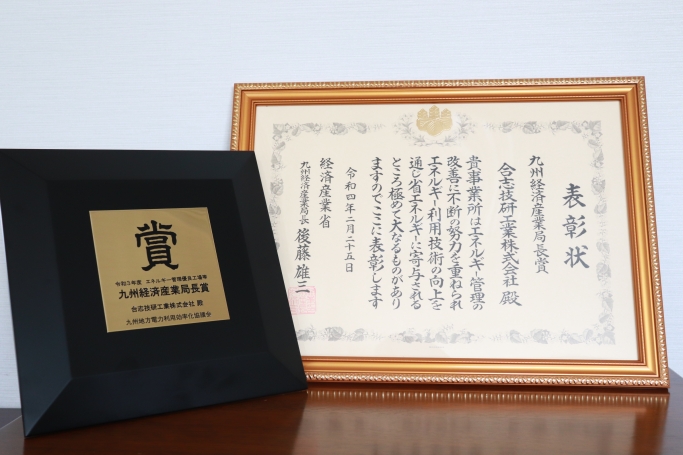 賞
令和3年度 エネルギー管理優良工場等
九州経済産業局長賞
合志技研工業株式会社 殿
九州地方電力利用効率化協議会
表彰状
九州経済産業局長賞
合志技研工業株式会社 殿
貴事業所はエネルギー管理の
改善に不断の努力を重ねられ
エネルギー利用技術の向上を
通じ省エネルギーに寄与される
ところ極めて大なるものがあり
ますのでここに表彰します
令和四年二月二十五日
経済産業省
九州経済産業局長 後藤雄三